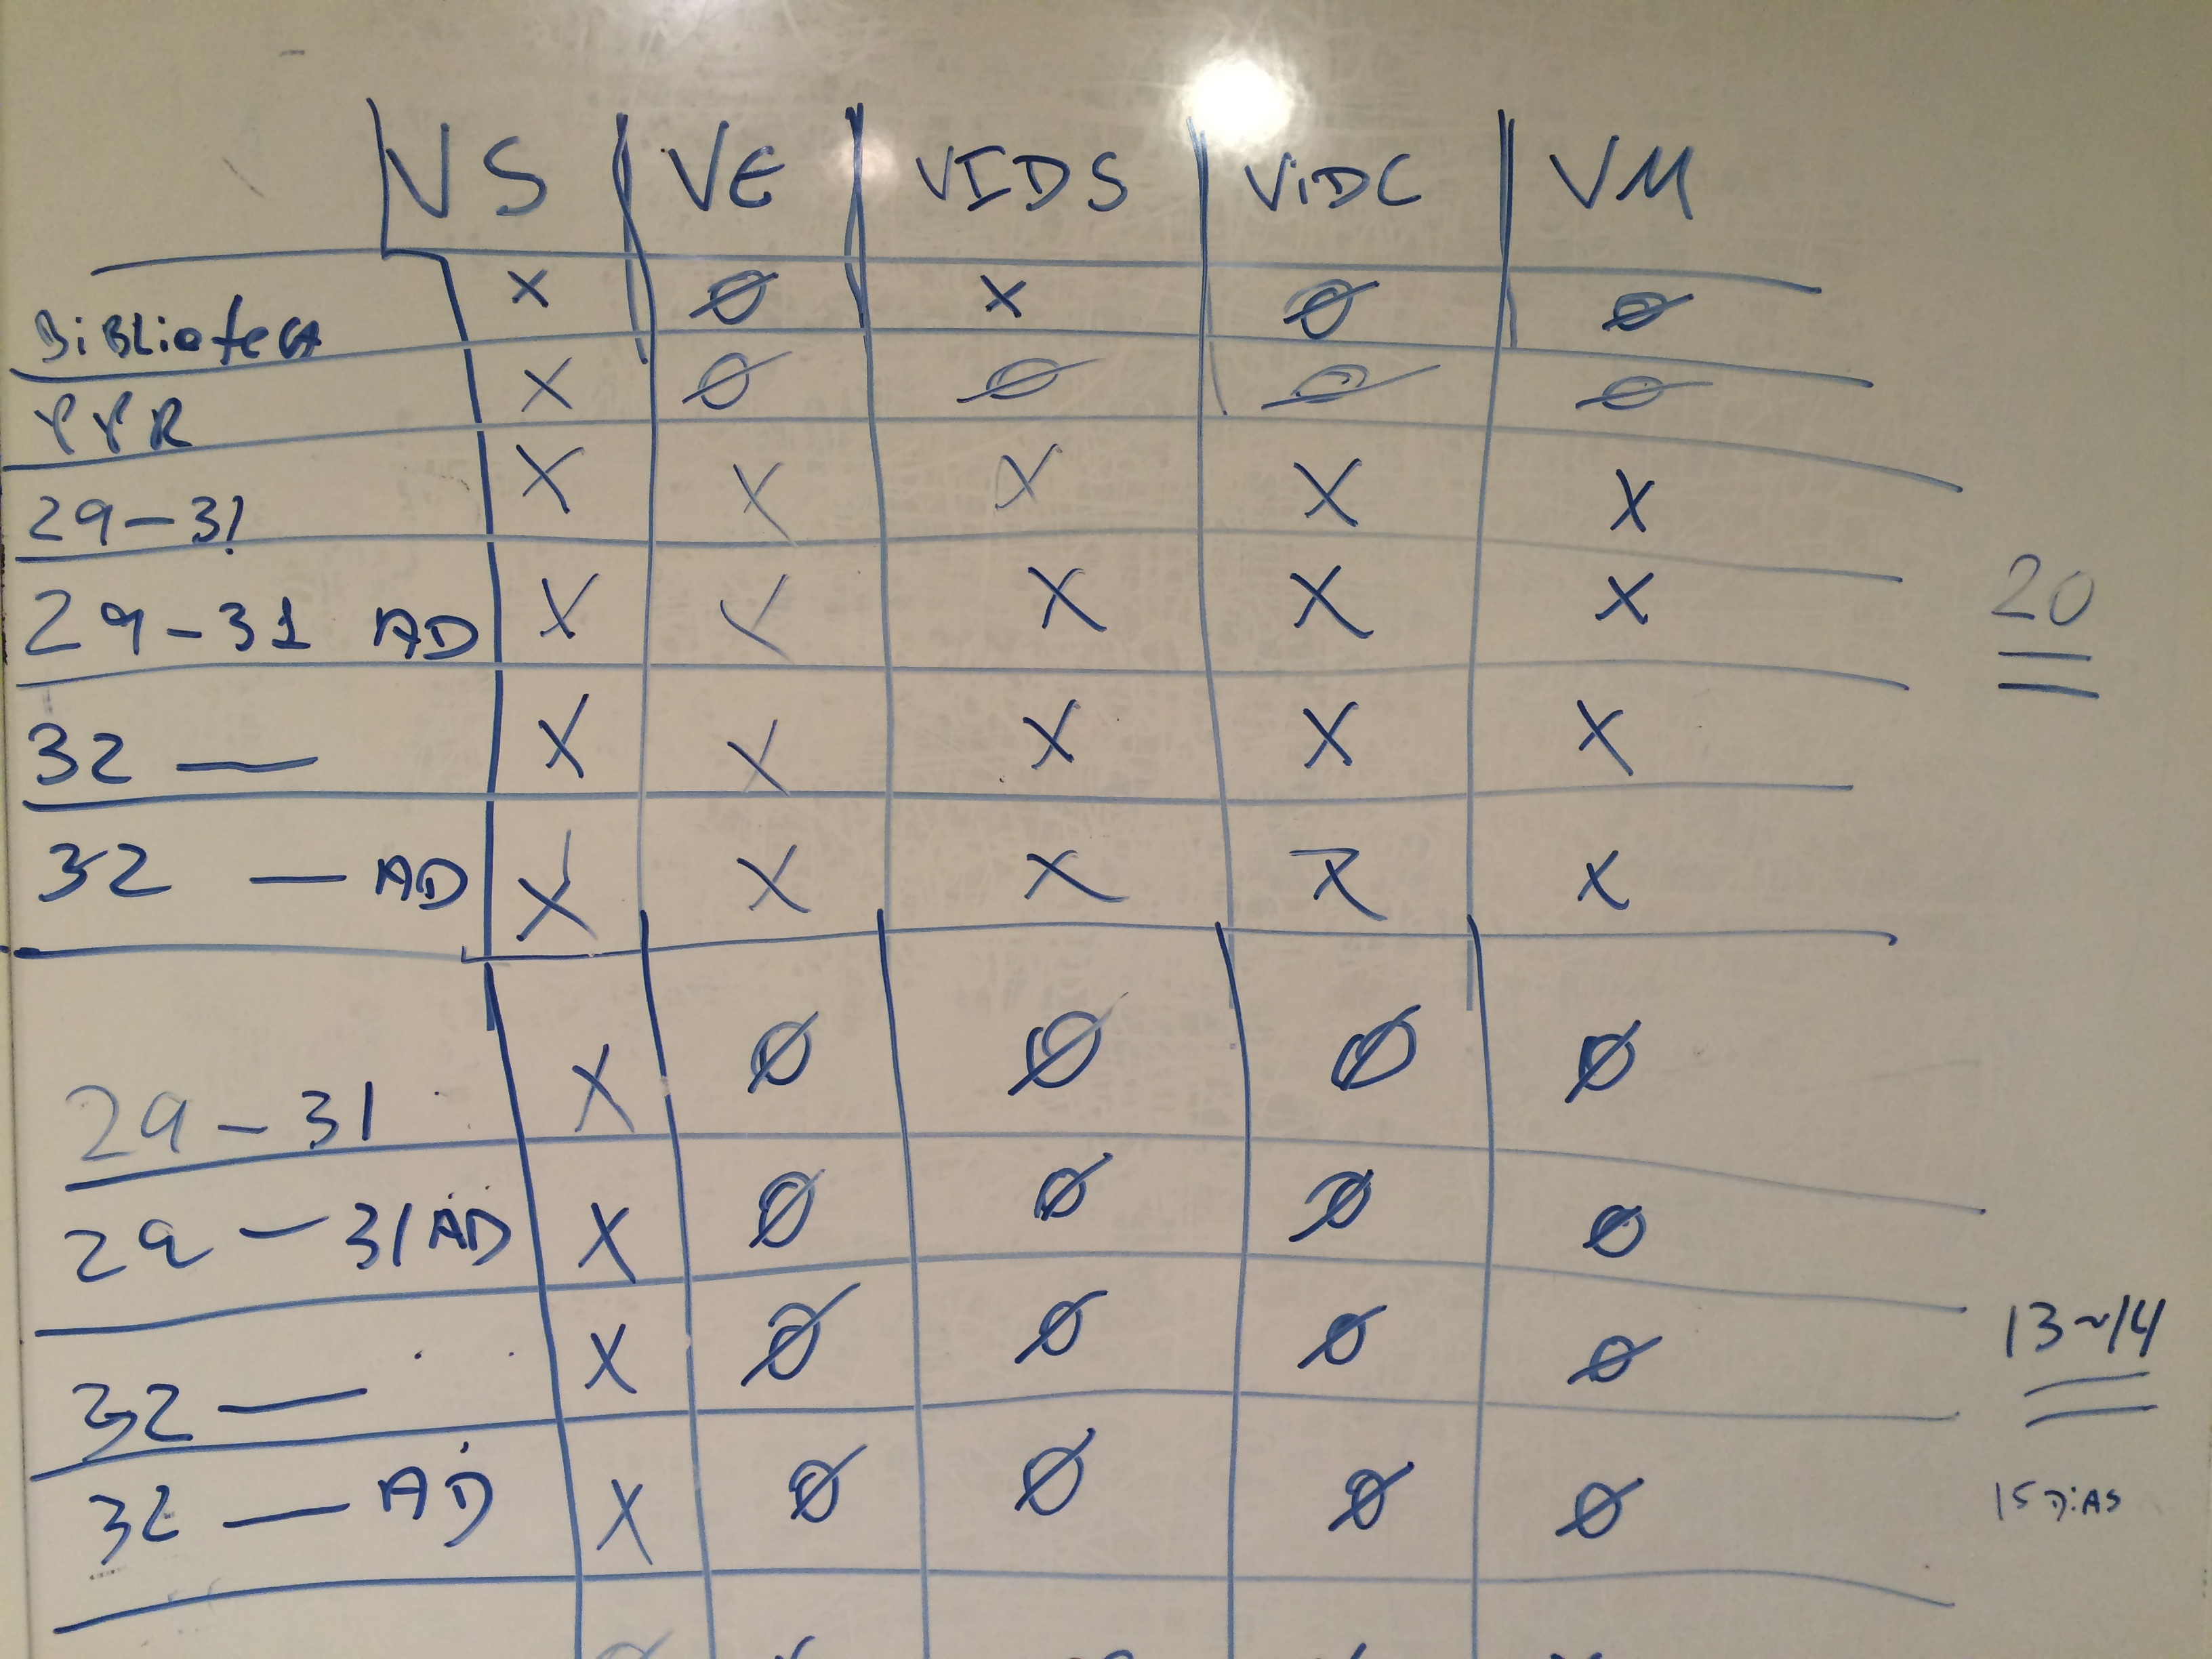 VS VE VIDS ViDC VM
BiBLioteCA X Ø X Ø Ø
PPR X Ø Ø Ø Ø
29-31 X X X X X
29-31 AD X X X X X
20
32 — X X X X X
32 — AD X X X X X
29-31 X Ø Ø Ø Ø
29-31 AD X Ø Ø Ø Ø
32 — X Ø Ø Ø Ø
13~14
32 — AD X Ø Ø Ø Ø
15 DiAS